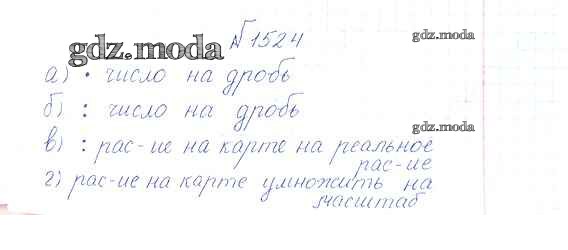 №1524
gdz.moda
gdz.moda
а) · число на дробь
б) : число на дробь
gdz.moda
в) : рас-ие на карте на реальное
рас-ие
г) рас-ие на карте умножить на
масштаб